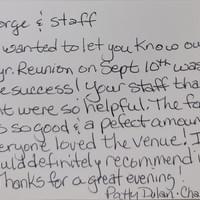 orge & staff
wanted to let you know ou
yr. Reunion on Sept 10th was
e success! Your staff tha
t were so helpful. The fo
s so good & a pefect amoun
eryone loved the venue! I
uld definitely recommend
Thanks for a great evening!
Patty Dolan - Cha